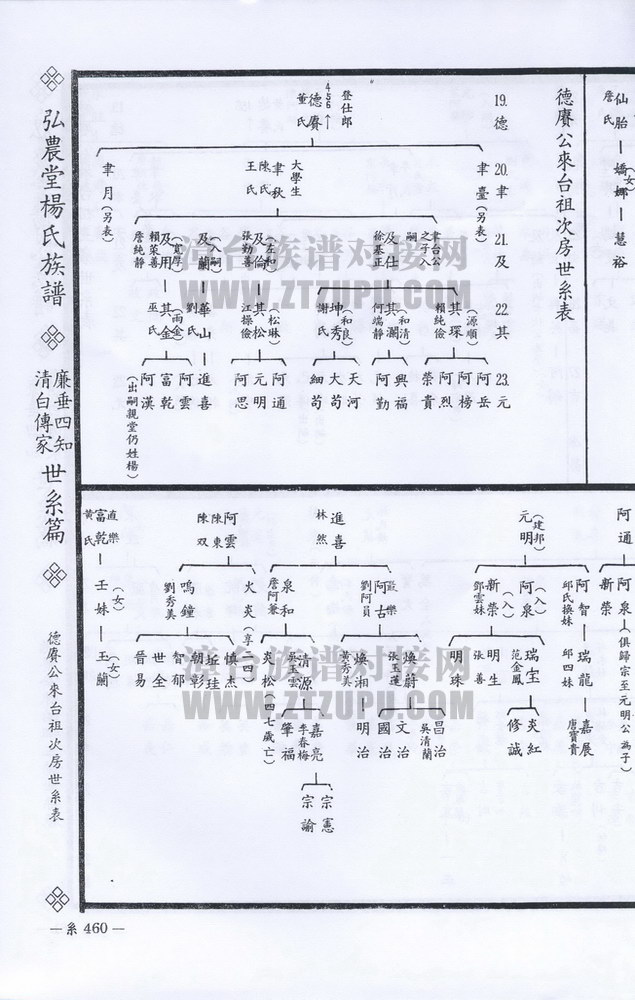 仙胎
詹氏
(女)
嬌娜
慧裕
德賡公來台祖次房世系表
19.德
20.聿
21.及
22.其
23.元
登仕郎
456
德賡
董氏
聿臺(另表)
大學生
聿秋
陳氏
王氏
聿月(另表)
聿台公之子入嗣
及仕
徐慕正
(左和)
及倫
張勤善
(入嗣)
及蘭
(寬厚)
及用
賴榮善
詹純靜
(源順)
其琛
賴純儉
(和清)
其瀾
何端靜
(和良)
坤秀
謝氏
(松琳)
其松
江操儉
華山
劉氏
(雨金)
其金
巫氏
阿岳
阿榜
阿烈
榮貴
興福
阿勤
天河
大苟
細苟
阿通
元明
阿思
進喜
阿雲
富乾
阿漢
(出嗣親堂仍姓楊)
阿通
阿泉
新榮
(俱歸宗至元明公為子)
(建邦)
元明
阿智
邱氏換妹
(入)
阿泉
(入)
新榮
鄧雲妹
瑞龍
邱四妹
瑞宝
范金鳳
明生
張善
明珠
嘉展
唐寶貴
炎紅
修誠
進喜
林然
阿古
劉阿員
泉和
詹阿兼
煥蔚
張玉蓮
煥湘
黃秀美
清源
吳玉雲
炎松(四七歲亡)
昌治
吳清蘭
文治
國治
明治
嘉亮
李春梅
肇福
宗憲
宗諭
阿雲
陳東
陳双
火炎(享一四)
鳴鐘
劉秀美
慎杰
坵珪
朝彰
智郁
世全
晉易
直樂
富乾
黃氏
(女)
壬妹
(女)
玉蘭
弘農堂楊氏族譜
廉垂四知
清白傳家
世系篇
德賡公來台祖次房世系表
—系 460—
漳台族谱对接网
WWW.ZTZUPU.COM
漳台族谱对接网
WWW.ZTZUPU.COM